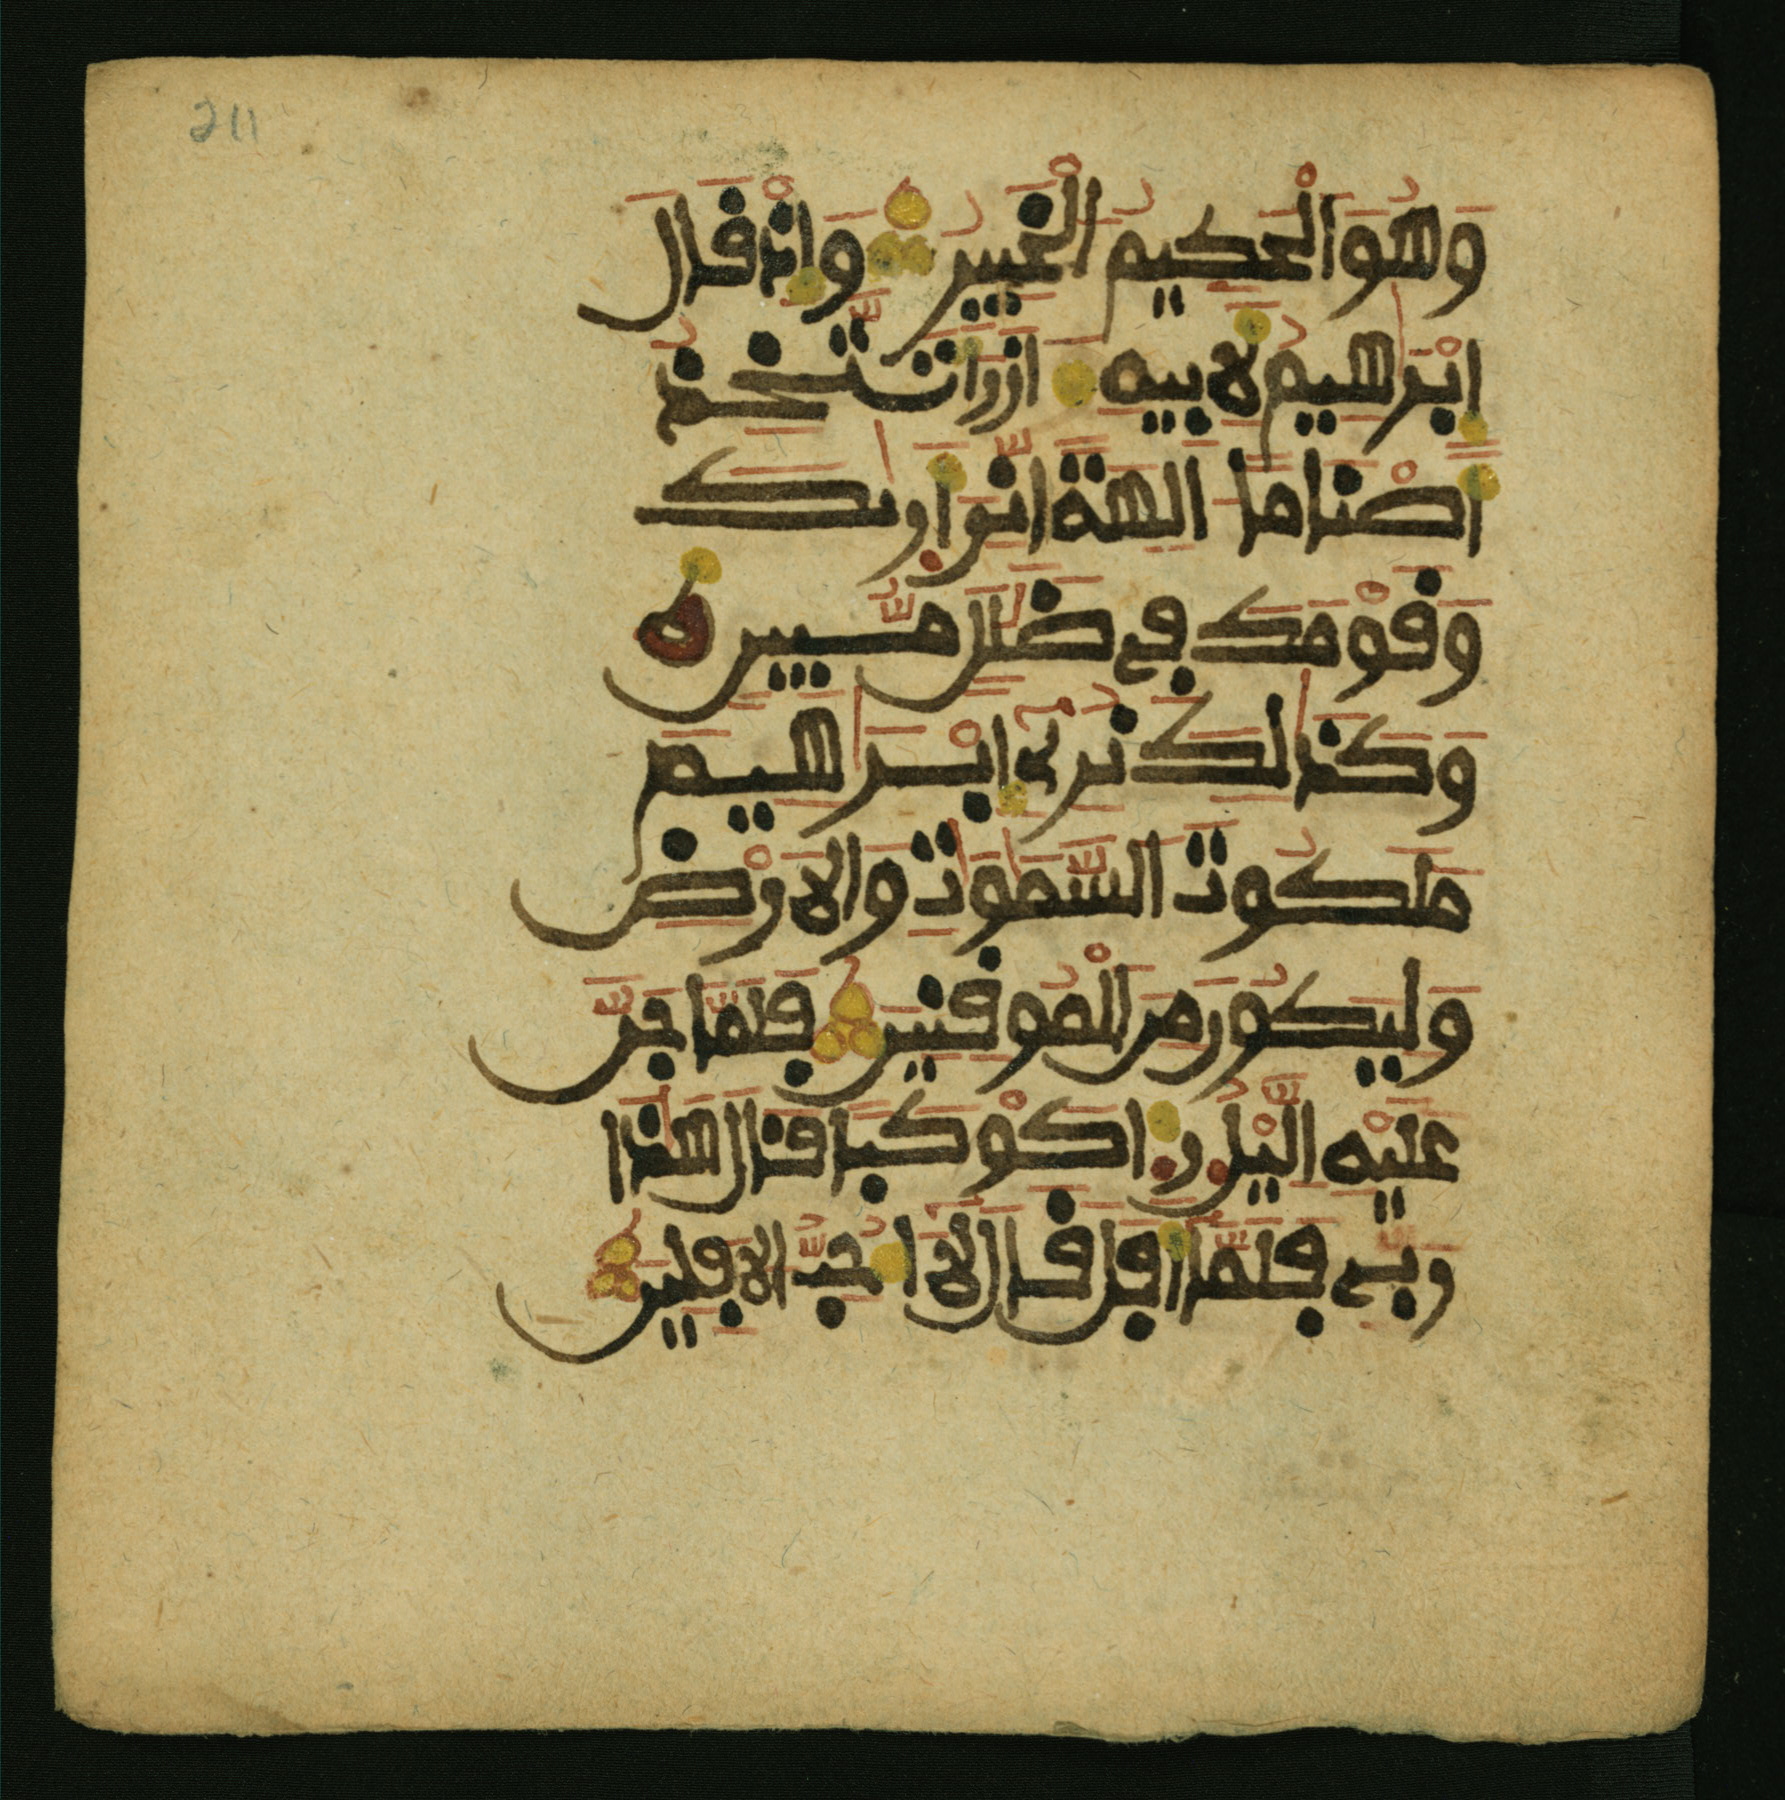 211
وَهُوَ الْحَكِيمُ الْخَبِيرُ وَإِذْ قَالَ
إِبْرَاهِيمُ لِأَبِيهِ ءَازَرَ أَتَتَّخِذُ
أَصْنَامًا ءَالِهَةً إِنِّيَ أَرَىٰكَ
وَقَوْمَكَ فِي ضَلَٰلٍ مُّبِينٍ
وَكَذَٰلِكَ نُرِي إِبْرَٰهِيمَ
مَلَكُوتَ السَّمَٰوَٰتِ وَالْأَرْضِ
وَلِيَكُونَ مِنَ الْمُوقِنِينَ فَلَمَّا جَنَّ
عَلَيْهِ الَّيْلُ رَءَا كَوْكَبًا قَالَ هَٰذَا
رَبِّي فَلَمَّا أَفَلَ قَالَ لَا أُحِبُّ الْأَفِلِينَ